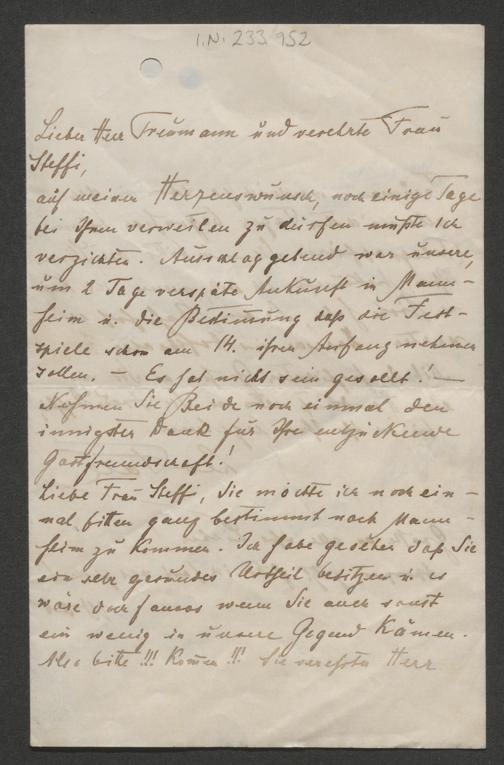 I.N. 233.952
Lieber Herr Treumann und verehrte Frau
Steffi,
auf meinen Herzenswunsch, noch einige Tage
bei Ihnen verweilen zu dürfen mußte ich
verzichten. Ausschlaggebend war unsere,
um 2 Tage verspäte Ankunft in Mann-
heim u. die Bestimmung daß die Fest-
spiele schon am 14. ihren Anfang nehmen
sollen. – Es hat nicht sein gesollt! –
Nehmen Sie Beide noch einmal den
innigsten Dank für Ihre entzückende
Gastfreundschaft!
Liebe Frau Steffi, Sie möchte ich noch ein-
mal bitten ganz bestimmt nach Mann-
heim zu kommen. Ich habe gesehen daß Sie
ein sehr gesundes Urtheil besitzen u. es
wäre doch famos wenn Sie auch sonst
ein wenig in unsere Gegend kämen.
Also bitte!!! Komen!!! Sie verehrter Herr